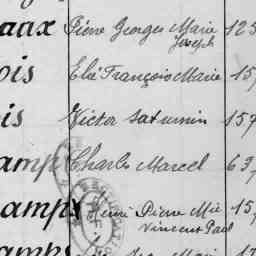 aax Pierre Georges Marie 125
Joseph
ois Elie François Marie 15
is Victor Saturnin 157
amps Charles Marcel 63
amps Henri Pierre Mie 15
Vincent Paul
amps Marie 17